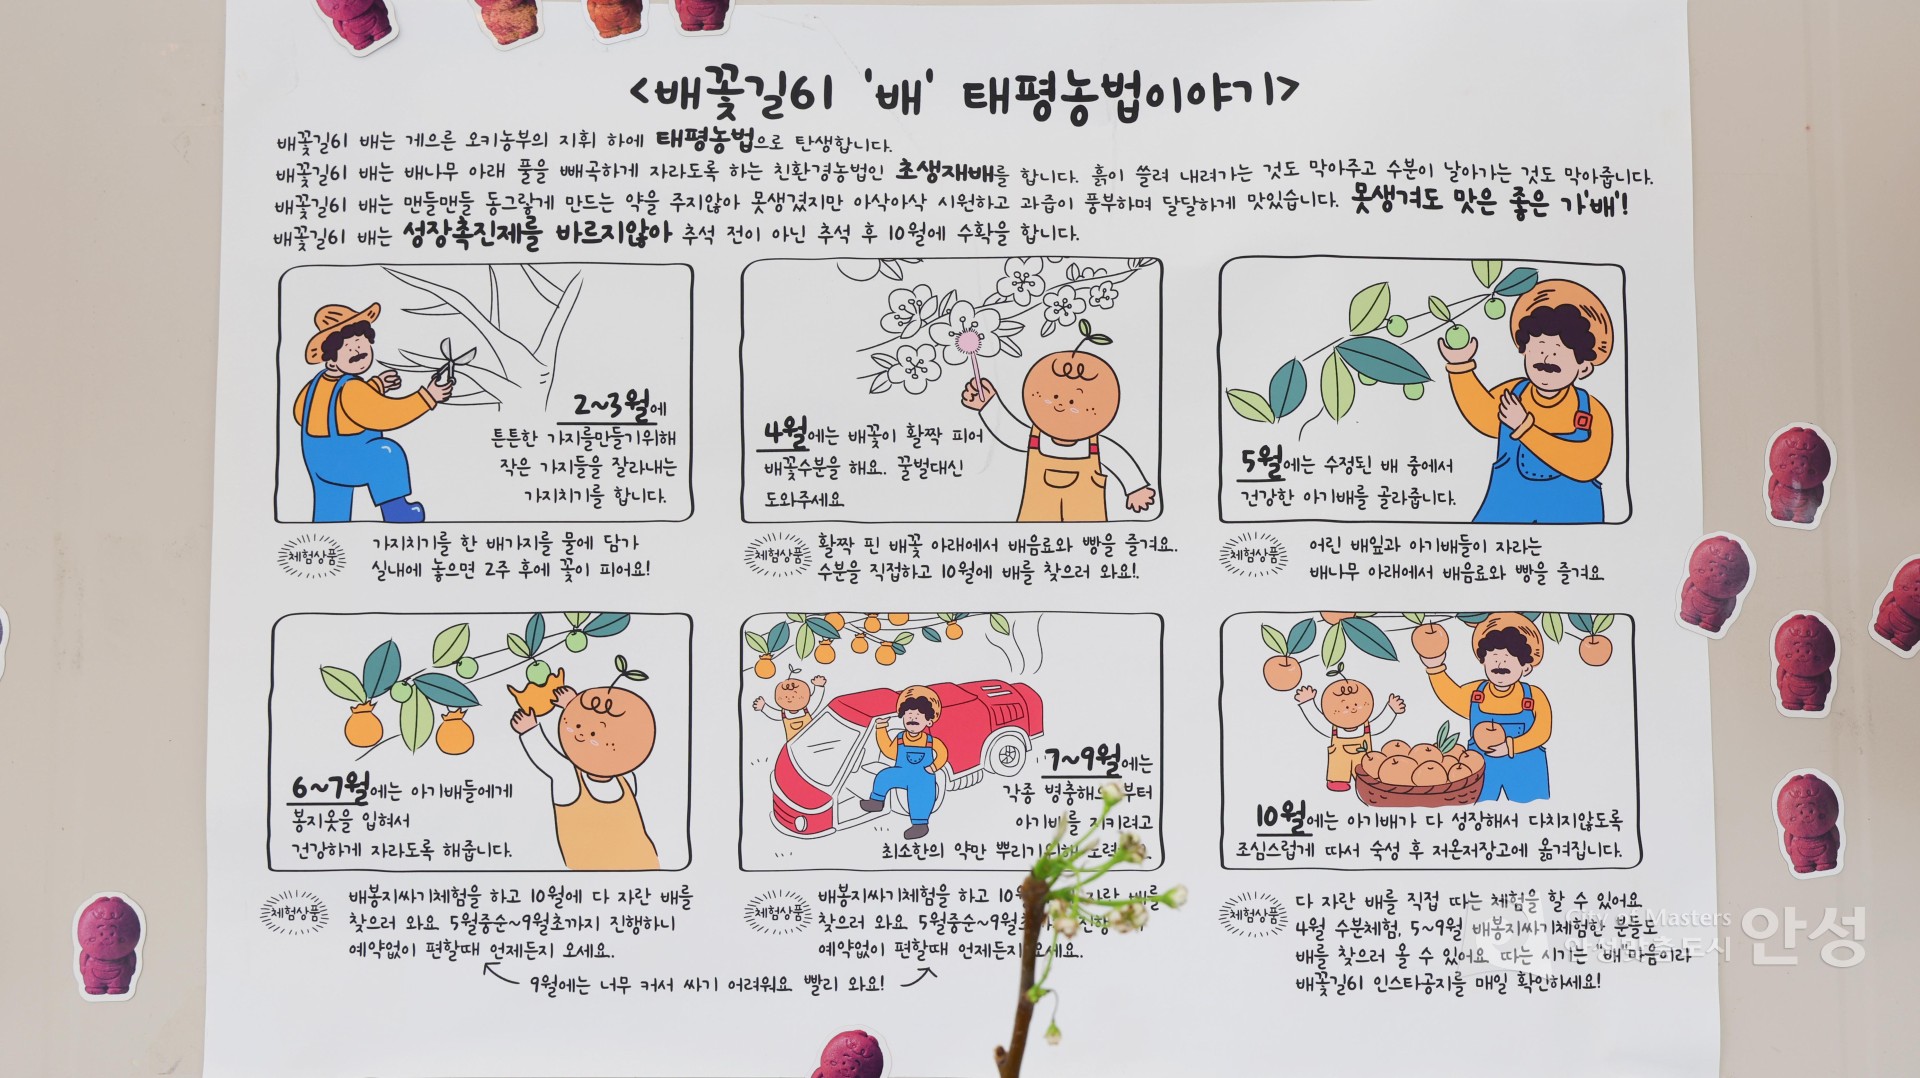 <배꽃길61 '배' 태평농법이야기>
배꽃길61 배는 게으른 오키농부의 지휘 하에 태평농법으로 탄생합니다.
배꽃길61 배는 배나무 아래 풀을 빼곡하게 자라도록 하는 친환경농법인 초생재배를 합니다. 흙이 쓸려 내려가는 것도 막아주고 수분이 날아가는 것도 막아줍니다.
배꽃길61 배는 맨들맨들 동그랗게 만드는 약을 주지않아 못생겼지만 아삭아삭 시원하고 과즙이 풍부하며 달달하게 맛있습니다. 못생겨도 맛은 좋은 가'배'!
배꽃길61 배는 성장촉진제를 바르지않아 추석 전이 아닌 추석 후 10월에 수확을 합니다.
2~3월에
튼튼한 가지를만들기위해
작은 가지들을 잘라내는
가지치기를 합니다.
체험상품
가지치기를 한 배가지를 물에 담가
실내에 놓으면 2주 후에 꽃이 피어요!
4월에는 배꽃이 활짝 피어
배꽃수분을 해요. 꿀벌대신
도와주세요
체험상품
활짝 핀 배꽃 아래에서 배음료와 빵을 즐겨요.
수분을 직접하고 10월에 배를 찾으러 와요!
5월에는 수정된 배 중에서
건강한 아기배를 골라줍니다.
체험상품
어린 배잎과 아기배들이 자라는
배나무 아래에서 배음료와 빵을 즐겨요
6~7월에는 아기배들에게
봉지옷을 입혀서
건강하게 자라도록 해줍니다.
체험상품
배봉지싸기체험을 하고 10월에 다 자란 배를
찾으러 와요 5월중순~9월초까지 진행하니
예약없이 편할때 언제든지 오세요.
7~9월에는
각종 병충해으 부터
아기배를 지키려고
최소한의 약만 뿌리기위해 노력
체험상품
배봉지싸기체험을 하고 10 자란 배를
찾으러 와요 5월중순~9월초 진행
예약없이 편할때 언제든지 오세요.
9월에는 너무 커서 싸기 어려워요 빨리 와요!
10월에는 아기배가 다 성장해서 다치지않도록
조심스럽게 따서 숙성 후 저온저장고에 옮겨집니다.
체험상품
다 자란 배를 직접 따는 체험을 할 수 있어요
4월 수분체험, 5~9월 배봉지싸기체험한 분들도
배를 찾으러 올 수 있어요 따는 시기는 "배"마음이라
배꽃길61 인스타공지를 매일 확인하세요!
City of Masters
안성맞춤도시 안성